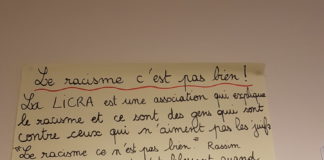 Le racisme c'est pas bien !
La LICRA est une association qui explique
le racisme et ce sont des gens qui sont
contre ceux qui n'aiment pas les juifs
"Le racisme ce n'est pas bien."
quand